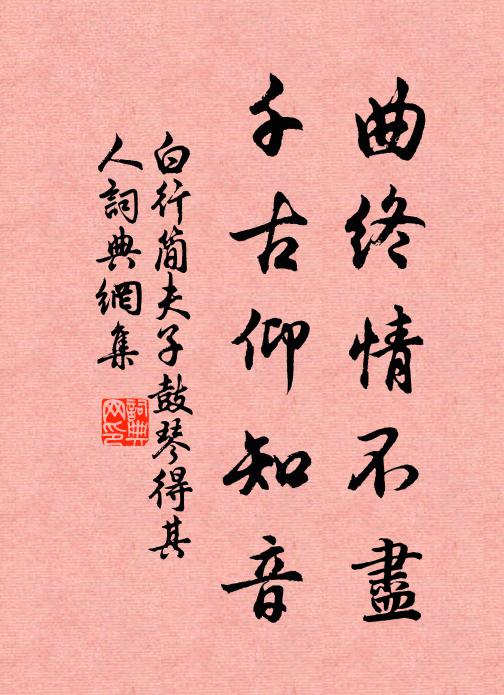 曲終情不盡
千古仰知音
白行简夫子鼓琴得其
人詞典網集
詞典
网印